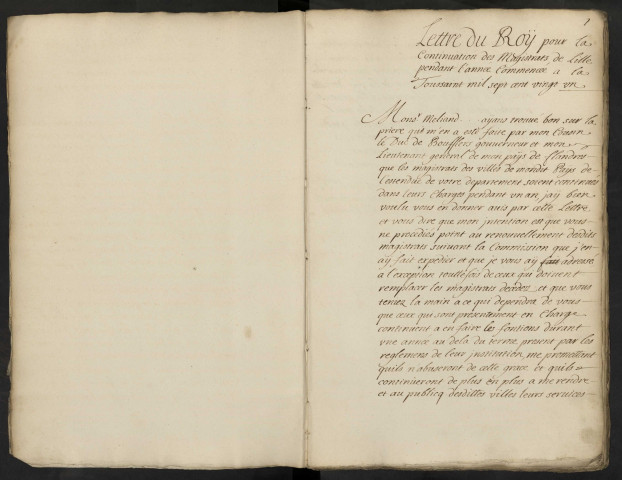 1
Lettre du Roÿ pour la
Continuation des Magistrats de Lille
pendant l'annee Commencée a la
Toussaint mil sept cent vingt un
Mons.r Meliand ayant trouvé bon sur la
priere qui m'en a esté faite par mon Cousin
le Duc de Boufflers gouverneur et mon
Lieutenant general de mon païs de flandres
que les magistrats des villes de mondit Païs de
l'etendüe de votre departement soient continuez
dans leurs Charges pendant un an jaÿ bien
voulu vous en donner avis par cette Lettre
et vous dire que mon intention est que vous
ne procediés point au renouvellement desdits
magistrats suivant la Commission que j'en
aÿ fait expedier et que je vous aÿ adressé
a l'exception touttefois de ceux qui doivent
remplacer les magistrats decedez, et que vous
teniez la main a ce qui dependra de vous
que ceux qui sont presentement en Charge
continuent a en faire les fontions durant
une année au dela du terme present par les
reglemens de leurs institution, me promettant
quils n'abuseront de cette grace et quils
continueront de plus en plus a me rendre
et au publicq desdittes villes leurs services